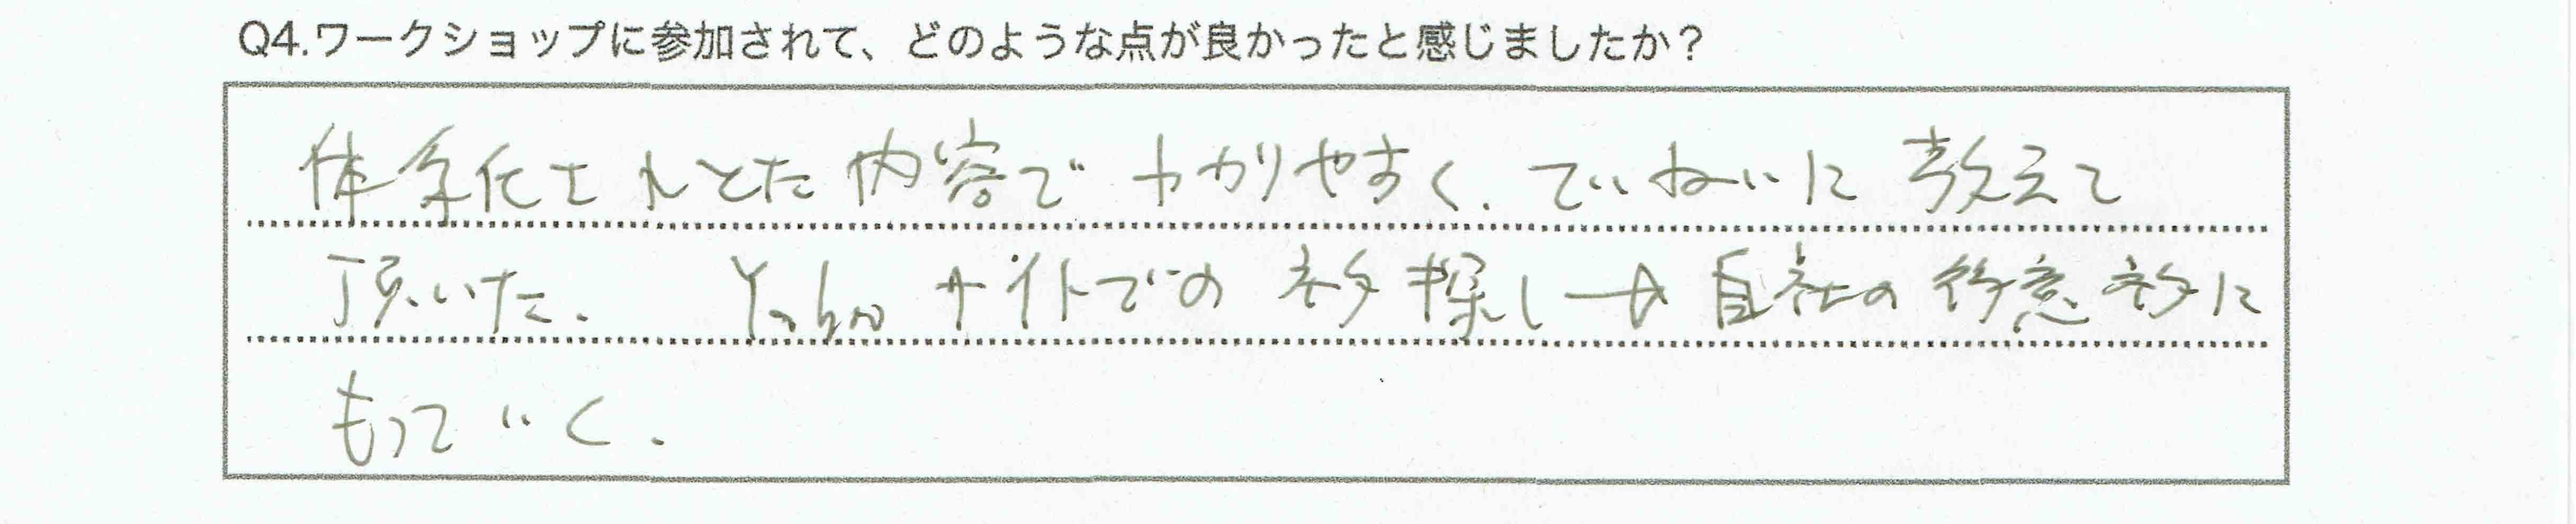 Q4.ワークショップに参加されて、どのような点が良かったと感じましたか？
体系化されとた内容でわかりやすく、ていねいに教えて
頂いた。 Yahoo サイトでの 探し→自社の得意 に
もっていく。